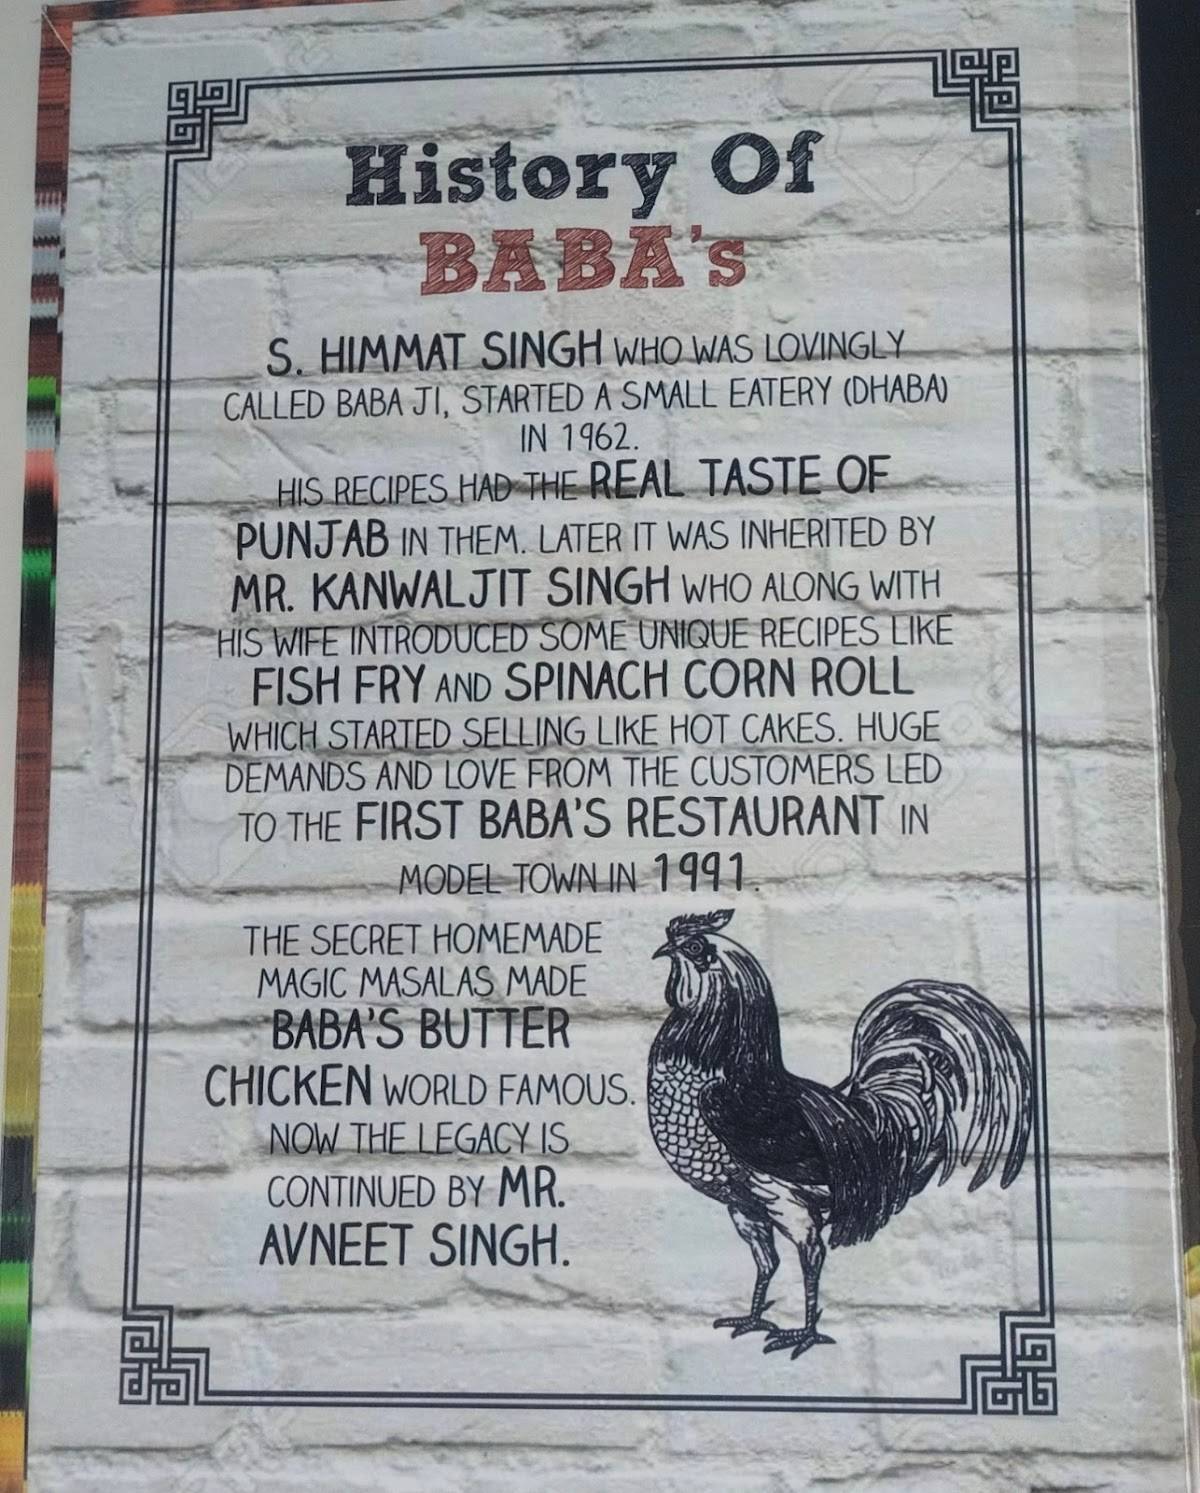 History Of
BABA's
S. HIMMAT SINGH WHO WAS LOVINGLY
CALLED BABA JI, STARTED A SMALL EATERY (DHABA)
IN 1962.
HIS RECIPES HAD THE REAL TASTE OF
PUNJAB IN THEM. LATER IT WAS INHERITED BY
MR. KANWALJIT SINGH WHO ALONG WITH
HIS WIFE INTRODUCED SOME UNIQUE RECIPES LIKE
FISH FRY AND SPINACH CORN ROLL
WHICH STARTED SELLING LIKE HOT CAKES. HUGE
DEMANDS AND LOVE FROM THE CUSTOMERS LED
TO THE FIRST BABA'S RESTAURANT IN
MODEL TOWN IN 1991.
THE SECRET HOMEMADE
MAGIC MASALAS MADE
BABA'S BUTTER
CHICKEN WORLD FAMOUS.
NOW THE LEGACY IS
CONTINUED BY MR.
AVNEET SINGH.